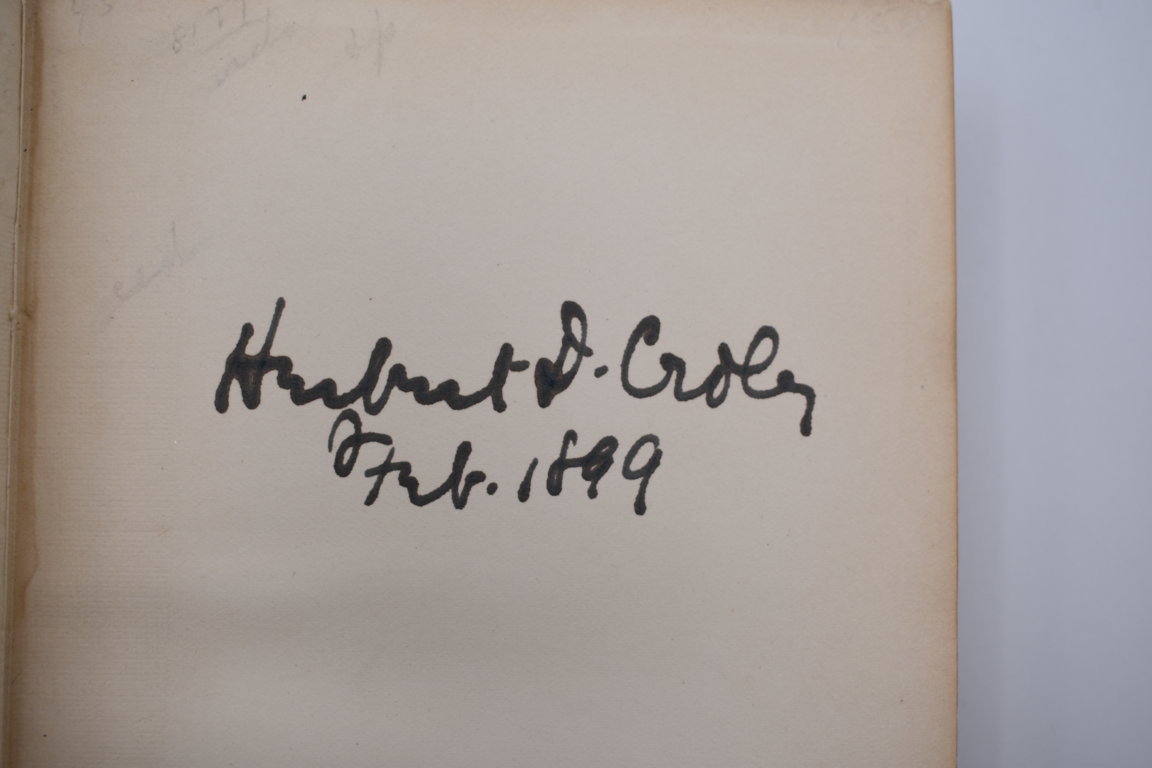 Herbert D. Croly
Feb. 1899